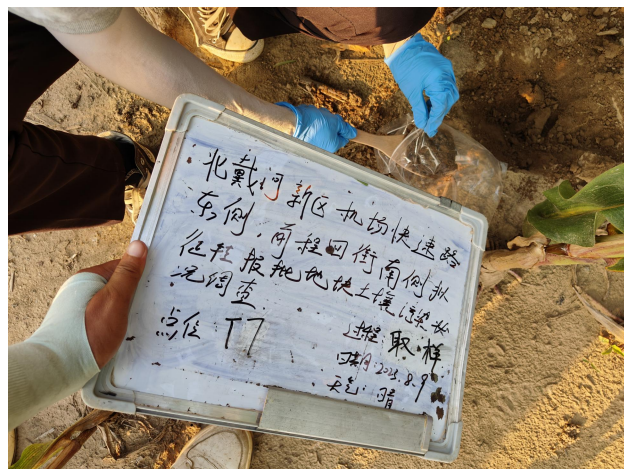 北戴河新区机场快速路
东侧、前程四街南侧拟
征挂报批地块土壤污染状
况调查
点位 T7
过程:取样
日期:2023.8.9
天气:晴